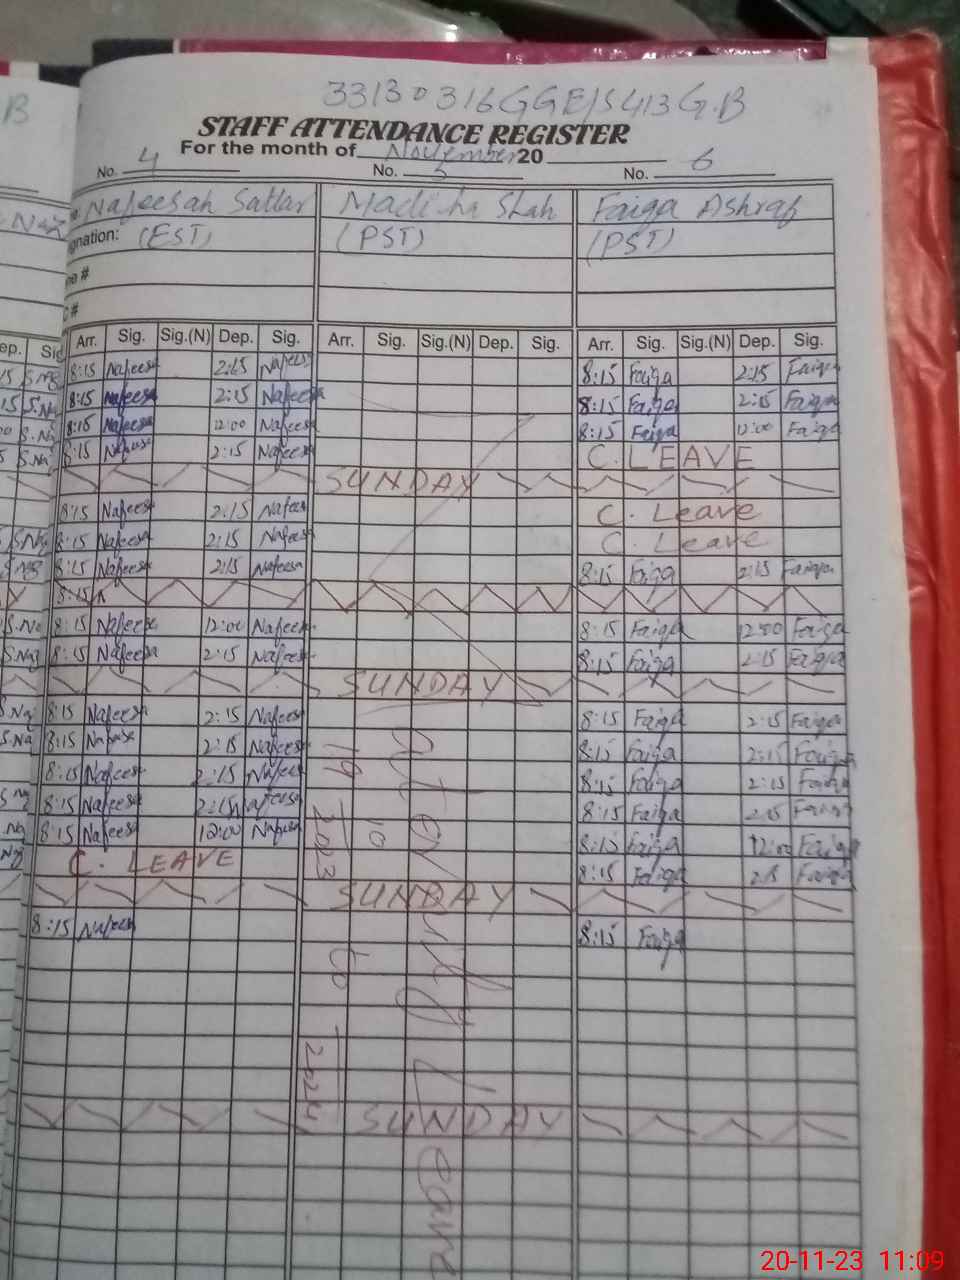 33130316 GGE/S 413 G.B
STAFF ATTENDANCE REGISTER
For the month of November 20
No. 4 No. 5 No. 6
Nafeesah Sattar Madiha Shah Faiqa Ashraf
gnation: (EST) (PST) (PST)
ne #
C #
Arr. Sig. Sig.(N) Dep. Sig. Arr. Sig. Sig.(N) Dep. Sig. Arr. Sig. Sig.(N) Dep. Sig.
8:15 Nafeesa 2:15 Nafeesa 8:15 Faiqa 2:15 Faiqa
8:15 Nafeesa 2:15 Nafeesa 8:15 Faiqa 2:15 Faiqa
8:15 Nafeesa 12:00 Nafeesa 8:15 Faiqa 12:00 Faiqa
8:15 Nafeesa 2:15 Nafeesa C. LEAVE
SUNDAY
8:15 Nafeesa 2:15 Nafeesa C. Leave
8:15 Nafeesa 2:15 Nafeesa C. Leave
8:15 Nafeesa 2:15 Nafeesa 8:15 Faiqa 2:15 Faiqa
8:15 N
8:15 Nafeesa 12:00 Nafeesa 8:15 Faiqa 12:00 Faiqa
8:15 Nafeesa 2:15 Nafeesa 8:15 Faiqa 2:15 Faiqa
SUNDAY
8:15 Nafeesa 2:15 Nafeesa 8:15 Faiqa 2:15 Faiqa
8:15 Nafeesa 2:15 Nafeesa 8:15 Faiqa 2:15 Faiqa
8:15 Nafeesa 2:15 Nafeesa 8:15 Faiqa 2:15 Faiqa
8:15 Nafeesa 2:15 Nafeesa 8:15 Faiqa 2:15 Faiqa
8:15 Nafeesa 12:00 Nafeesa 8:15 Faiqa 12:00 Faiqa
C. LEAVE 8:15 Faiqa 2:15 Faiqa
SUNDAY
8:15 Nafeesa 8:15 Faiqa
SUNDAY
19 10 2023 to 2024
Leave
20-11-23 11:09